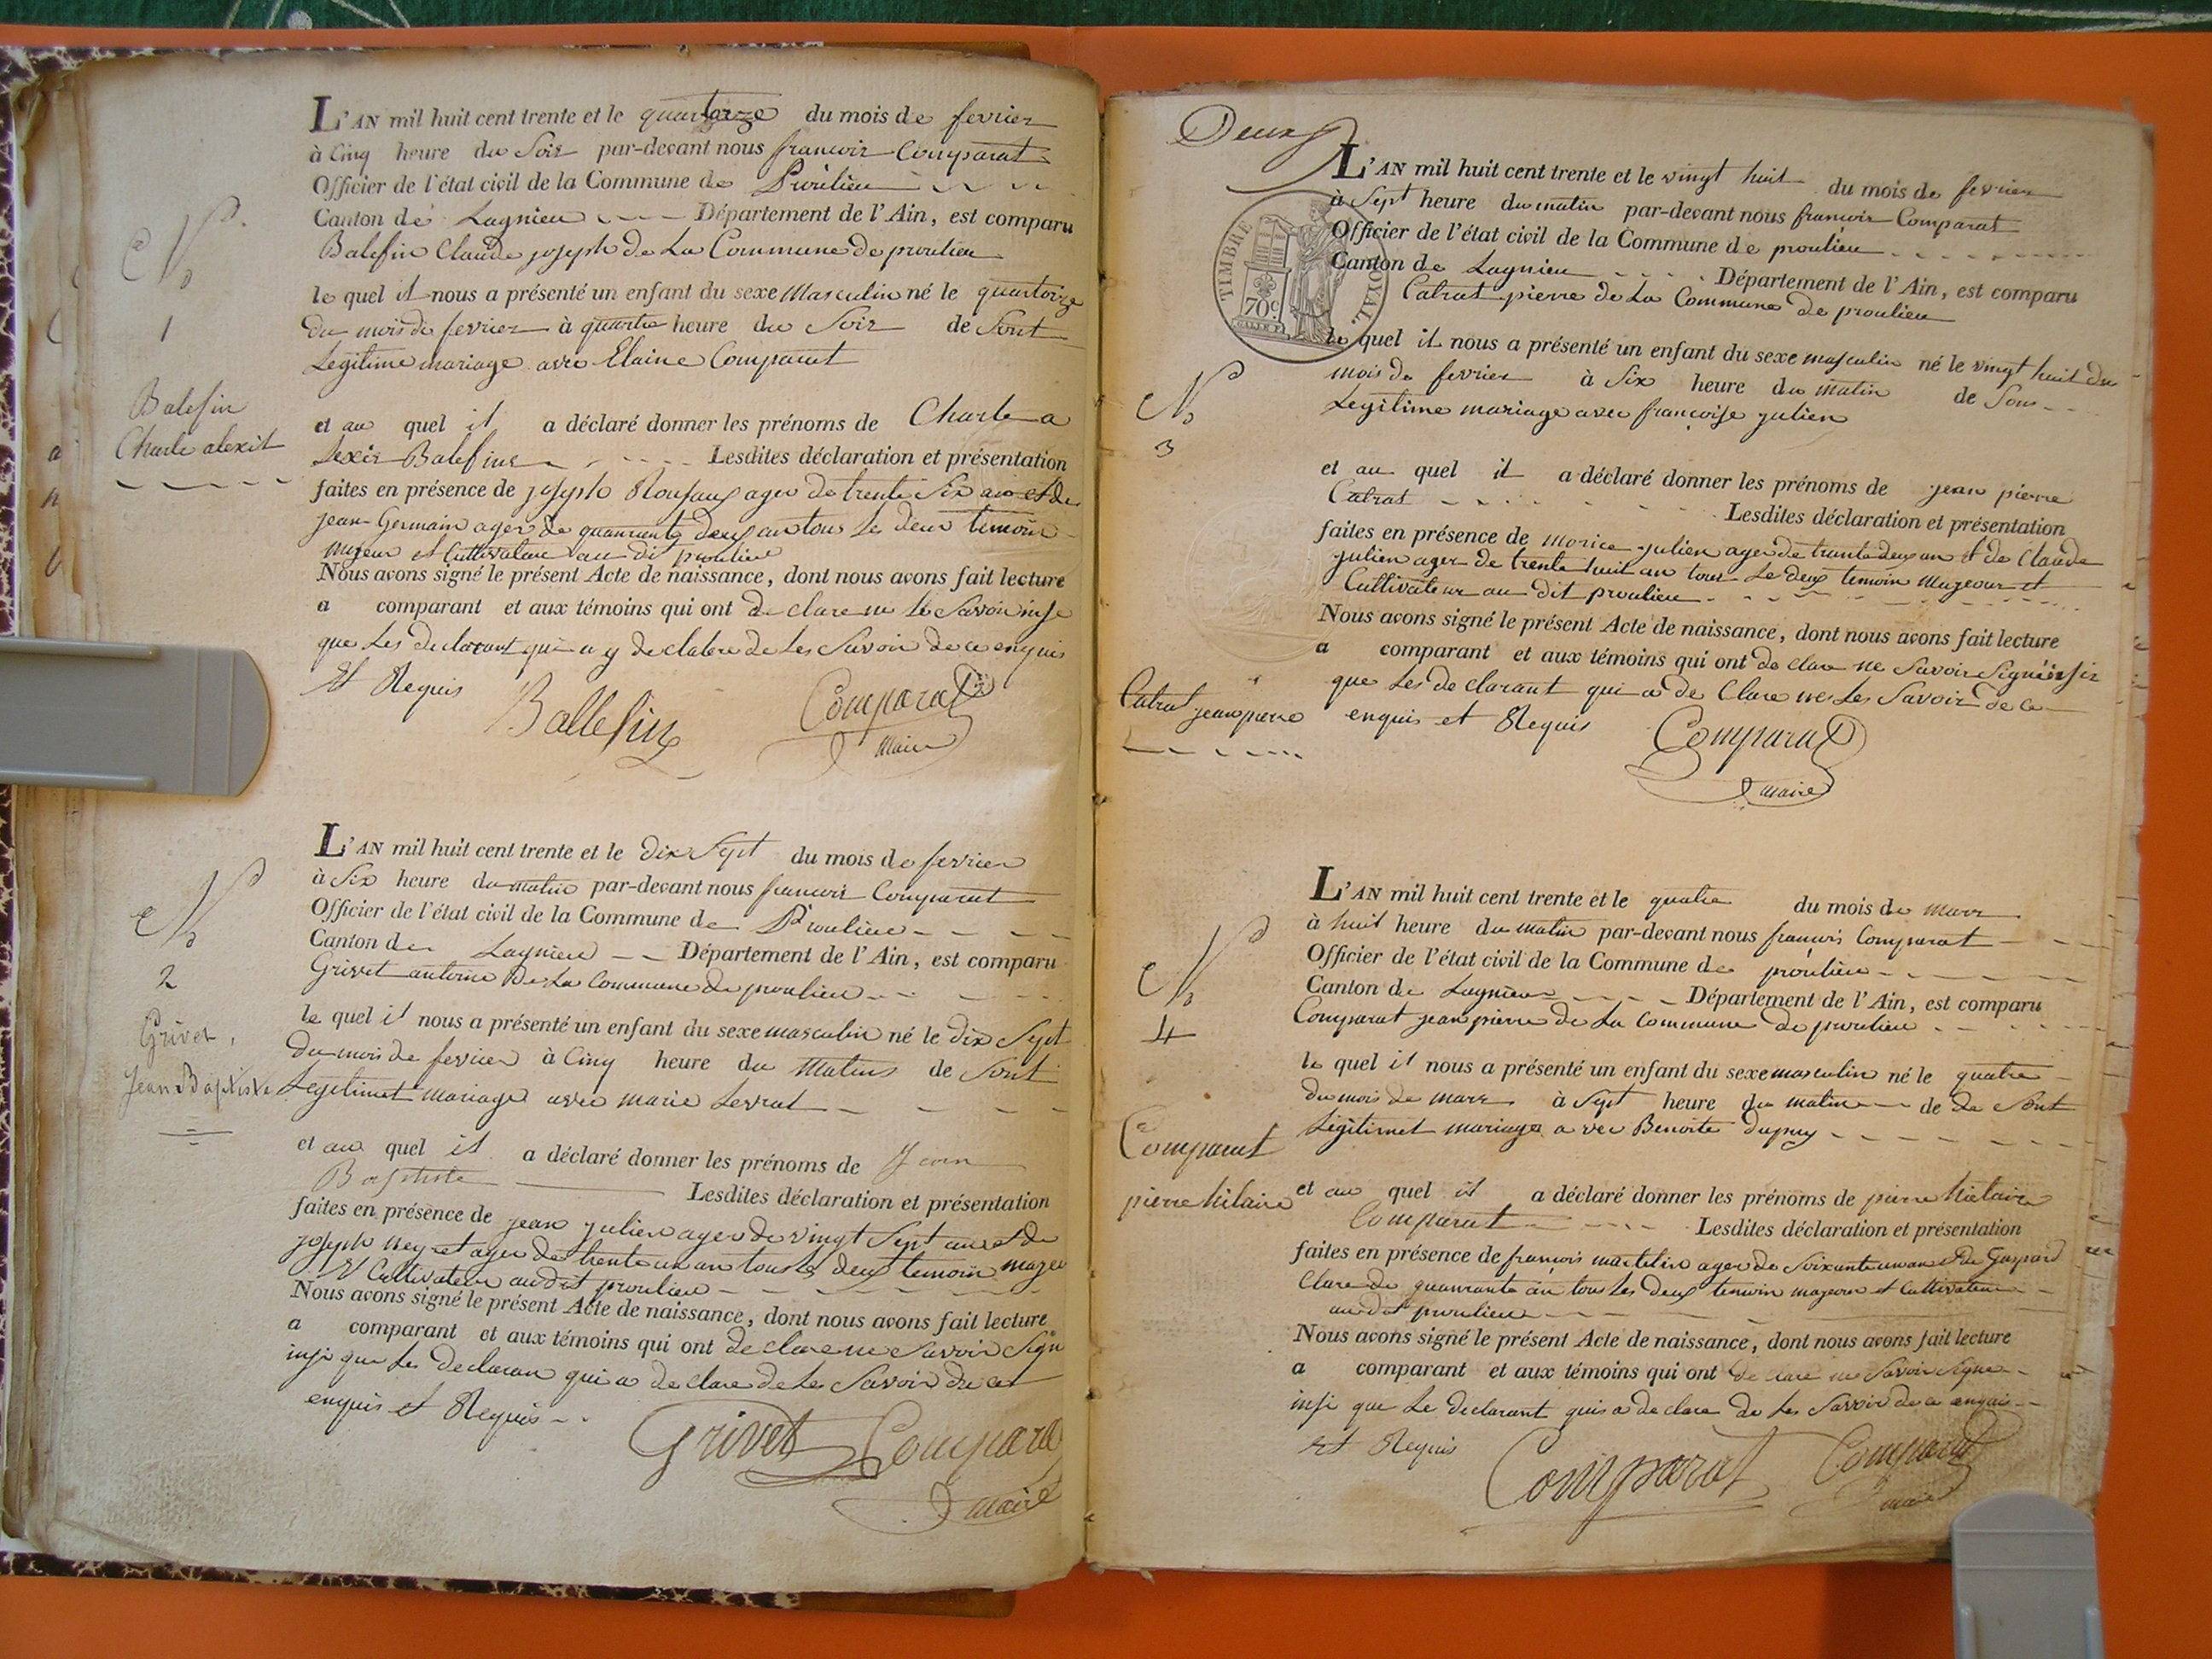 N°
1
Balefin
Charle alexit
L'AN mil huit cent trente et le quartorze du mois de fevrier
à Cinq heure du Soir par-devant nous francoir Comparat
Officier de l'état civil de la Commune de Proulieu
Canton de Lagnieu Département de l'Ain, est comparu
Balefin Claude joseph de La Commune de proulieu
le quel il nous a présenté un enfant du sexe Masculin né le quartorze
du mois de fevrier à quartre heure du Soir de Sont
Legitime mariage avec Elaine Comparat
et au quel il a déclaré donner les prénoms de Charle a
Lexis Balefine Lesdites déclaration et présentation
faites en présence de joseph ager de trente Six ans et de
jean Germain ager de quanrante deux an tous Le deux temoin
majeur et Cultivateur au dit proulieu
Nous avons signé le présent Acte de naissance, dont nous avons fait lecture
a comparant et aux témoins qui ont de clare ne Le Savoir insi
que Les declarant qui a y declalere de Les Savoir de ce enquis
Et Requis
Ballefin Comparat
Maire
N°
2
Grivet,
Jean Baptiste
L'AN mil huit cent trente et le dix Sept du mois de fevrier
à Six heure du matin par-devant nous francoir Comparat
Officier de l'état civil de la Commune de Proulieu
Canton de Lagnieu Département de l'Ain, est comparu
Grivet antoine De La Commune de proulieu
le quel il nous a présenté un enfant du sexe masculin né le dix Sept
du mois de fevrier à Cinq heure du Matins de Sont
Legitimet mariage avec marie Levrat
et au quel il a déclaré donner les prénoms de Jean
Baptiste Lesdites déclaration et présentation
faites en présence de jean julien ager de vingt Sept ans et de
joseph Neyret ager de trente un an tous Les deux temoin majeu
Et Cultivateur au dit proulieu
Nous avons signé le présent Acte de naissance, dont nous avons fait lecture
a comparant et aux témoins qui ont de clare ne Savoir Sign
insi que Les declaran qui a de clare de Les Savoir de ce
enquis et Requis
Grivet Comparat
maire
Deux
TIMBRE ROYAL.
70c
N°
3
Catrat jean pierre
L'AN mil huit cent trente et le vingt huit du mois de fevrier
à Sept heure du matin par-devant nous francoir Comparat
Officier de l'état civil de la Commune de proulieu
Canton de Lagnieu Département de l'Ain, est comparu
Catrat pierre de La Commune de proulieu
le quel il nous a présenté un enfant du sexe masculin né le vingt huit du
mois de fevrier à Six heure du matin de Son
Legitime mariage avec françoise julien
et au quel il a déclaré donner les prénoms de jean pierre
Catrat Lesdites déclaration et présentation
faites en présence de morice julien ager de trante deux an et de Claude
julien ager de trente huit an tous Le deux temoin Majeour et
Cultivateur au dit proulieu
Nous avons signé le présent Acte de naissance, dont nous avons fait lecture
a comparant et aux témoins qui ont de clare ne Savoir Signé insi
que Les declarant qui a de Clare ne Les Savoir de ce
enquis et Requis
Comparat
maire
N°
4
Comparat
pierre hilaire
L'AN mil huit cent trente et le quatre du mois de mars
à huit heure du matin par-devant nous francois Comparat
Officier de l'état civil de la Commune de proulieu
Canton de Lagnieu Département de l'Ain, est comparu
Comparat jean pierre de La Commune de proulieu
le quel il nous a présenté un enfant du sexe masculin né le quatre
du mois de mars à Sept heure du matin de de Sont
Legitimet mariage avec Benoite dupuy
et au quel il a déclaré donner les prénoms de pierre hielaire
Comparat Lesdites déclaration et présentation
faites en présence de francois martelin ager de Soixante un an et de Gaspard
Clare de quanrante an tous Les deux temoin majeour et Cultivateur
au dit proulieu
Nous avons signé le présent Acte de naissance, dont nous avons fait lecture
a comparant et aux témoins qui ont de clare ne Savoir Signe
insi que Le declarant qui a de clare de Les Savoir de ce enquis
Et Requis
Comparat Comparat
maire